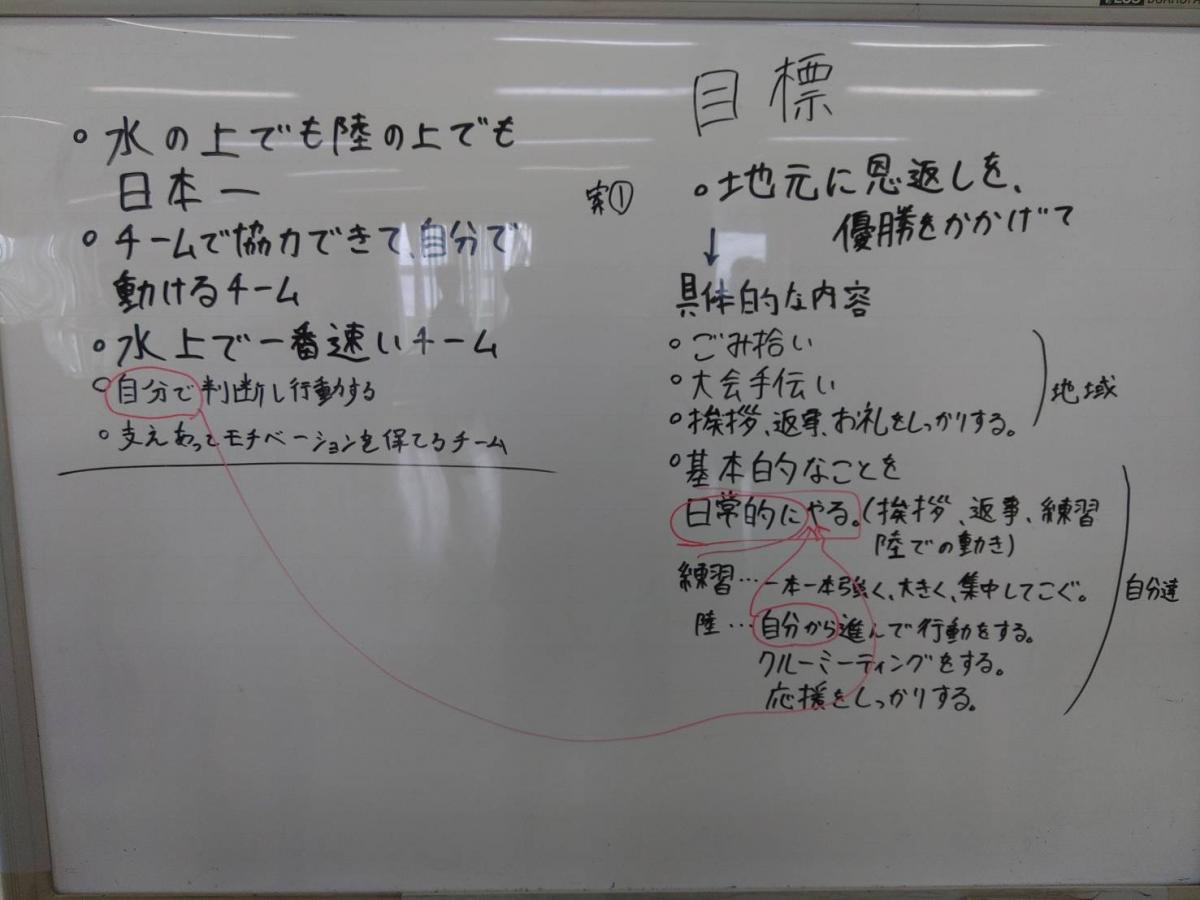 。水の上でも陸の上でも
日本一
。チームで協力できて、自分で
動けるチーム
。水上で一番速いチーム
。自分で判断し行動する
。支えあってモチベーションを保てるチーム
目標
案①
。地元に恩返しを、
優勝をかかげて
↓
具体的な内容
。ごみ拾い
。大会手伝い
。挨拶、返事、お礼をしっかりする。
地域
。基本的なことを
日常的にやる。(挨拶、返事、練習
陸での動き)
練習…一本一本強く、大きく、集中してこぐ。
陸…自分から進んで行動をする。
クルーミーティングをする。
応援をしっかりする。
自分達